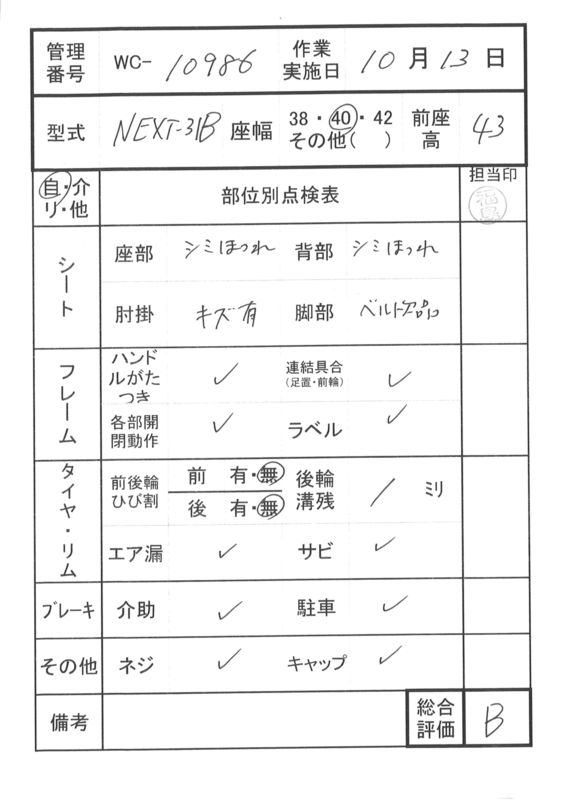 管理番号 WC- 10986 作業実施日 10月13日
型式 NEXT-31B 座幅 38・40・42 その他( ) 前座高 43
自・介 リ・他 部位別点検表 担当印
福島
シート 座部 シミほつれ 背部 シミほつれ
肘掛 キズ有 脚部 ベルト欠品
フレーム ハンドルがたつき ✓ 連結具合(足置・前輪) ✓
各部開閉動作 ✓ ラベル ✓
タイヤ・リム 前後輪ひび割 前 有・無 後輪溝残 / ミリ
後 有・無
エア漏 ✓ サビ ✓
ブレーキ 介助 ✓ 駐車 ✓
その他 ネジ ✓ キャップ ✓
備考 総合評価 B